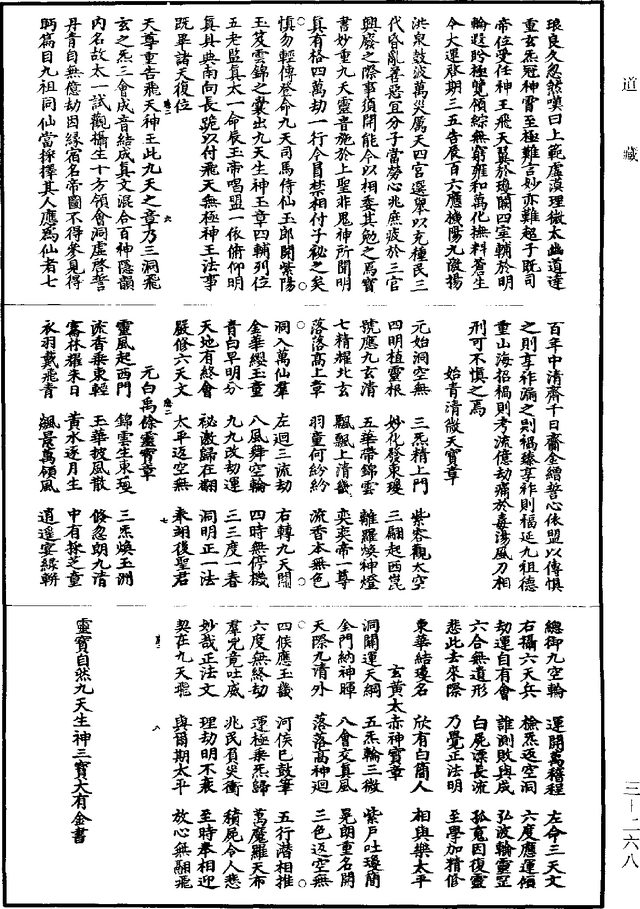 道藏
琅良久忽然嘆曰上範虛漠理微太幽道達
重玄炁冠神霄至極難言妙亦難超子既司
帝位受任神王飛天翼於瓊闕四宰輔於明
輪超昤極覽領綜無窮雍和萬化撫料蒼生
今大運啟期三五告晨百六應機陽九激揚
洪泉鼓波萬災厲天四宮選舉以充種民三
代昏亂善惡宜分子當勞心兆庶疲於三官
興廢之際事須開能今以相委其勉之焉寶
書妙重九天靈音施於上聖非鬼神所聞明
真有格四萬劫一行今冒禁相付子祕之矣
慎勿輕傳於命九天司馬侍仙玉郎開紫陽
玉笈雲錦之囊出九天生神玉章四輔列位
五老監真太一命辰玉帝唱盟一依俯仰明
真具典南向長跪以付飛天無極神王法事
既畢諸天復位
天尊重告飛天神王此九天之章乃三洞飛
玄之炁三會成音結成真文混合百神隱韻
內名故太一試觀攝生十方領會洞虛啓誓
丹青自無億劫因緣宿名帝圖不得參見得
眄篇目九祖同仙當採擇其人應爲仙者七
百年中清齋千日齎金繒誓心依盟以傳慎
之則享祚漏之則禍臻享祚則福延九祖德
重山海招禍則考流億劫痛於毒湯風刀相
刑可不慎之焉
始青清微天寶章
元始洞空無 三炁精上門 紫容觀太空
四明植靈根 妙化發東瓊 三翮起西崑
號應九玄清 五華帶錦雲 離羅煥神燈
七精耀北玄 飄飄上清畿 奕奕帝一尊
落落高上章 羽童何紛紛 流香本無色
洞入萬仙羣 左迴三流劫 右轉九天關
金華纓玉童 八風舞空輪 四時無停機
青白早明分 九九改劫運 三三度一春
天地有終會 祕激歸在翻 洞明正一法
嚴修六天文 太平返空無 奉翊復聖君
元白禹餘靈寶章
靈風起西門 錦雲生東瓊 三炁煥玉洲
流青乘東輕 玉華披風散 倏忽朗九清
騫林耀朱日 黃水逐月生 中有採芝童
衣羽戴飛青 飆景萬領風 逍遥宴綠軿
總御九空輪 運開萬積程 左命三天文
右攝六天兵 檢炁返空洞 六度應運領
劫運自有會 誰測敗與成 弘波輪靈罡
六合無遺形 白屍漂長流 孤魂因復靈
悲此去來際 乃覺正法明 至學加精修
東華結瓊名 欣有白簡人 相與樂太平
玄黃太赤神寶章
洞開運天綱 五炁輪三微 紫戶吐瓊簡
金門納神暉 八會交真風 晃朗重名開
天際九清外 落落高神迴 三色返空無
四候應玉畿 河侯已鼓筆 五行潛相推
六度無終劫 運極乘炁歸 萬魔羅天布
羣兇竟吐威 兆民負尖衝 積屍令人悲
妙哉正法文 理劫明不衰 至時奉相迎
契在九天飛 與爾期太平 放心無翮飛
靈寶自然九天生神三寶大有金書
三—二六八